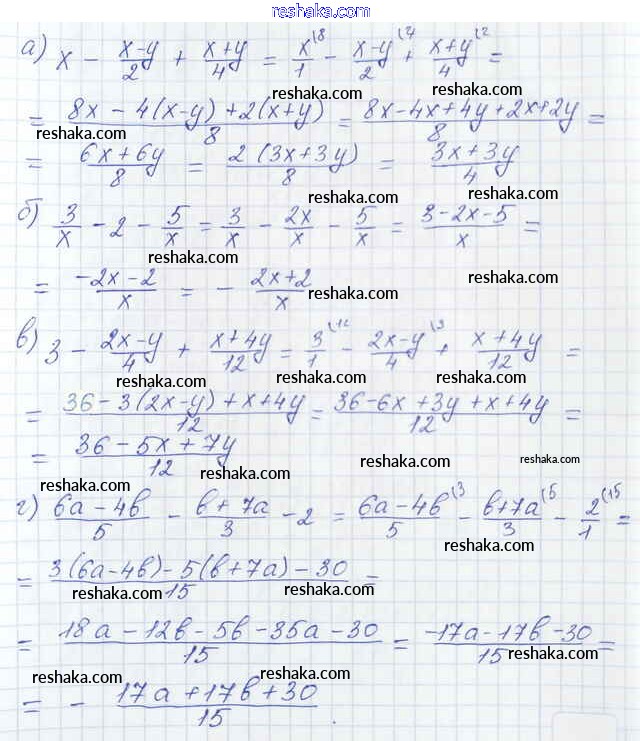 www.reshaka.com
а) x - (x-y)/2 + (x+y)/4 = x/1 (8 - (x-y)/2 (4 + (x+y)/4 (2 =
= (8x - 4(x-y) + 2(x+y))/8 = (8x-4x+4y+2x+2y)/8 =
reshaka.com reshaka.com
= (6x+6y)/8 = (2(3x+3y))/8 = (3x+3y)/4
reshaka.com
б) 3/x - 2 - 5/x = 3/x - 2x/x - 5/x = (3-2x-5)/x =
reshaka.com reshaka.com
= (-2x-2)/x = - (2x+2)/x
reshaka.com reshaka.com
в) 3 - (2x-y)/4 + (x+4y)/12 = 3/1 (12 - (2x-y)/4 (3 + (x+4y)/12 =
reshaka.com reshaka.com reshaka.com
= (36-3(2x-y)+x+4y)/12 = (36-6x+3y+x+4y)/12 =
= (36-5x+7y)/12
reshaka.com reshaka.com reshaka.com
reshaka.com
г) (6a-4b)/5 - (b+7a)/3 - 2 = (6a-4b)/5 (3 - (b+7a)/3 (5 - 2/1 (15 =
reshaka.com
= (3(6a-4b)-5(b+7a)-30)/15 =
reshaka.com
= (18a-12b-5b-35a-30)/15 = (-17a-17b-30)/15 =
reshaka.com reshaka.com reshaka.com
= - (17a+17b+30)/15.